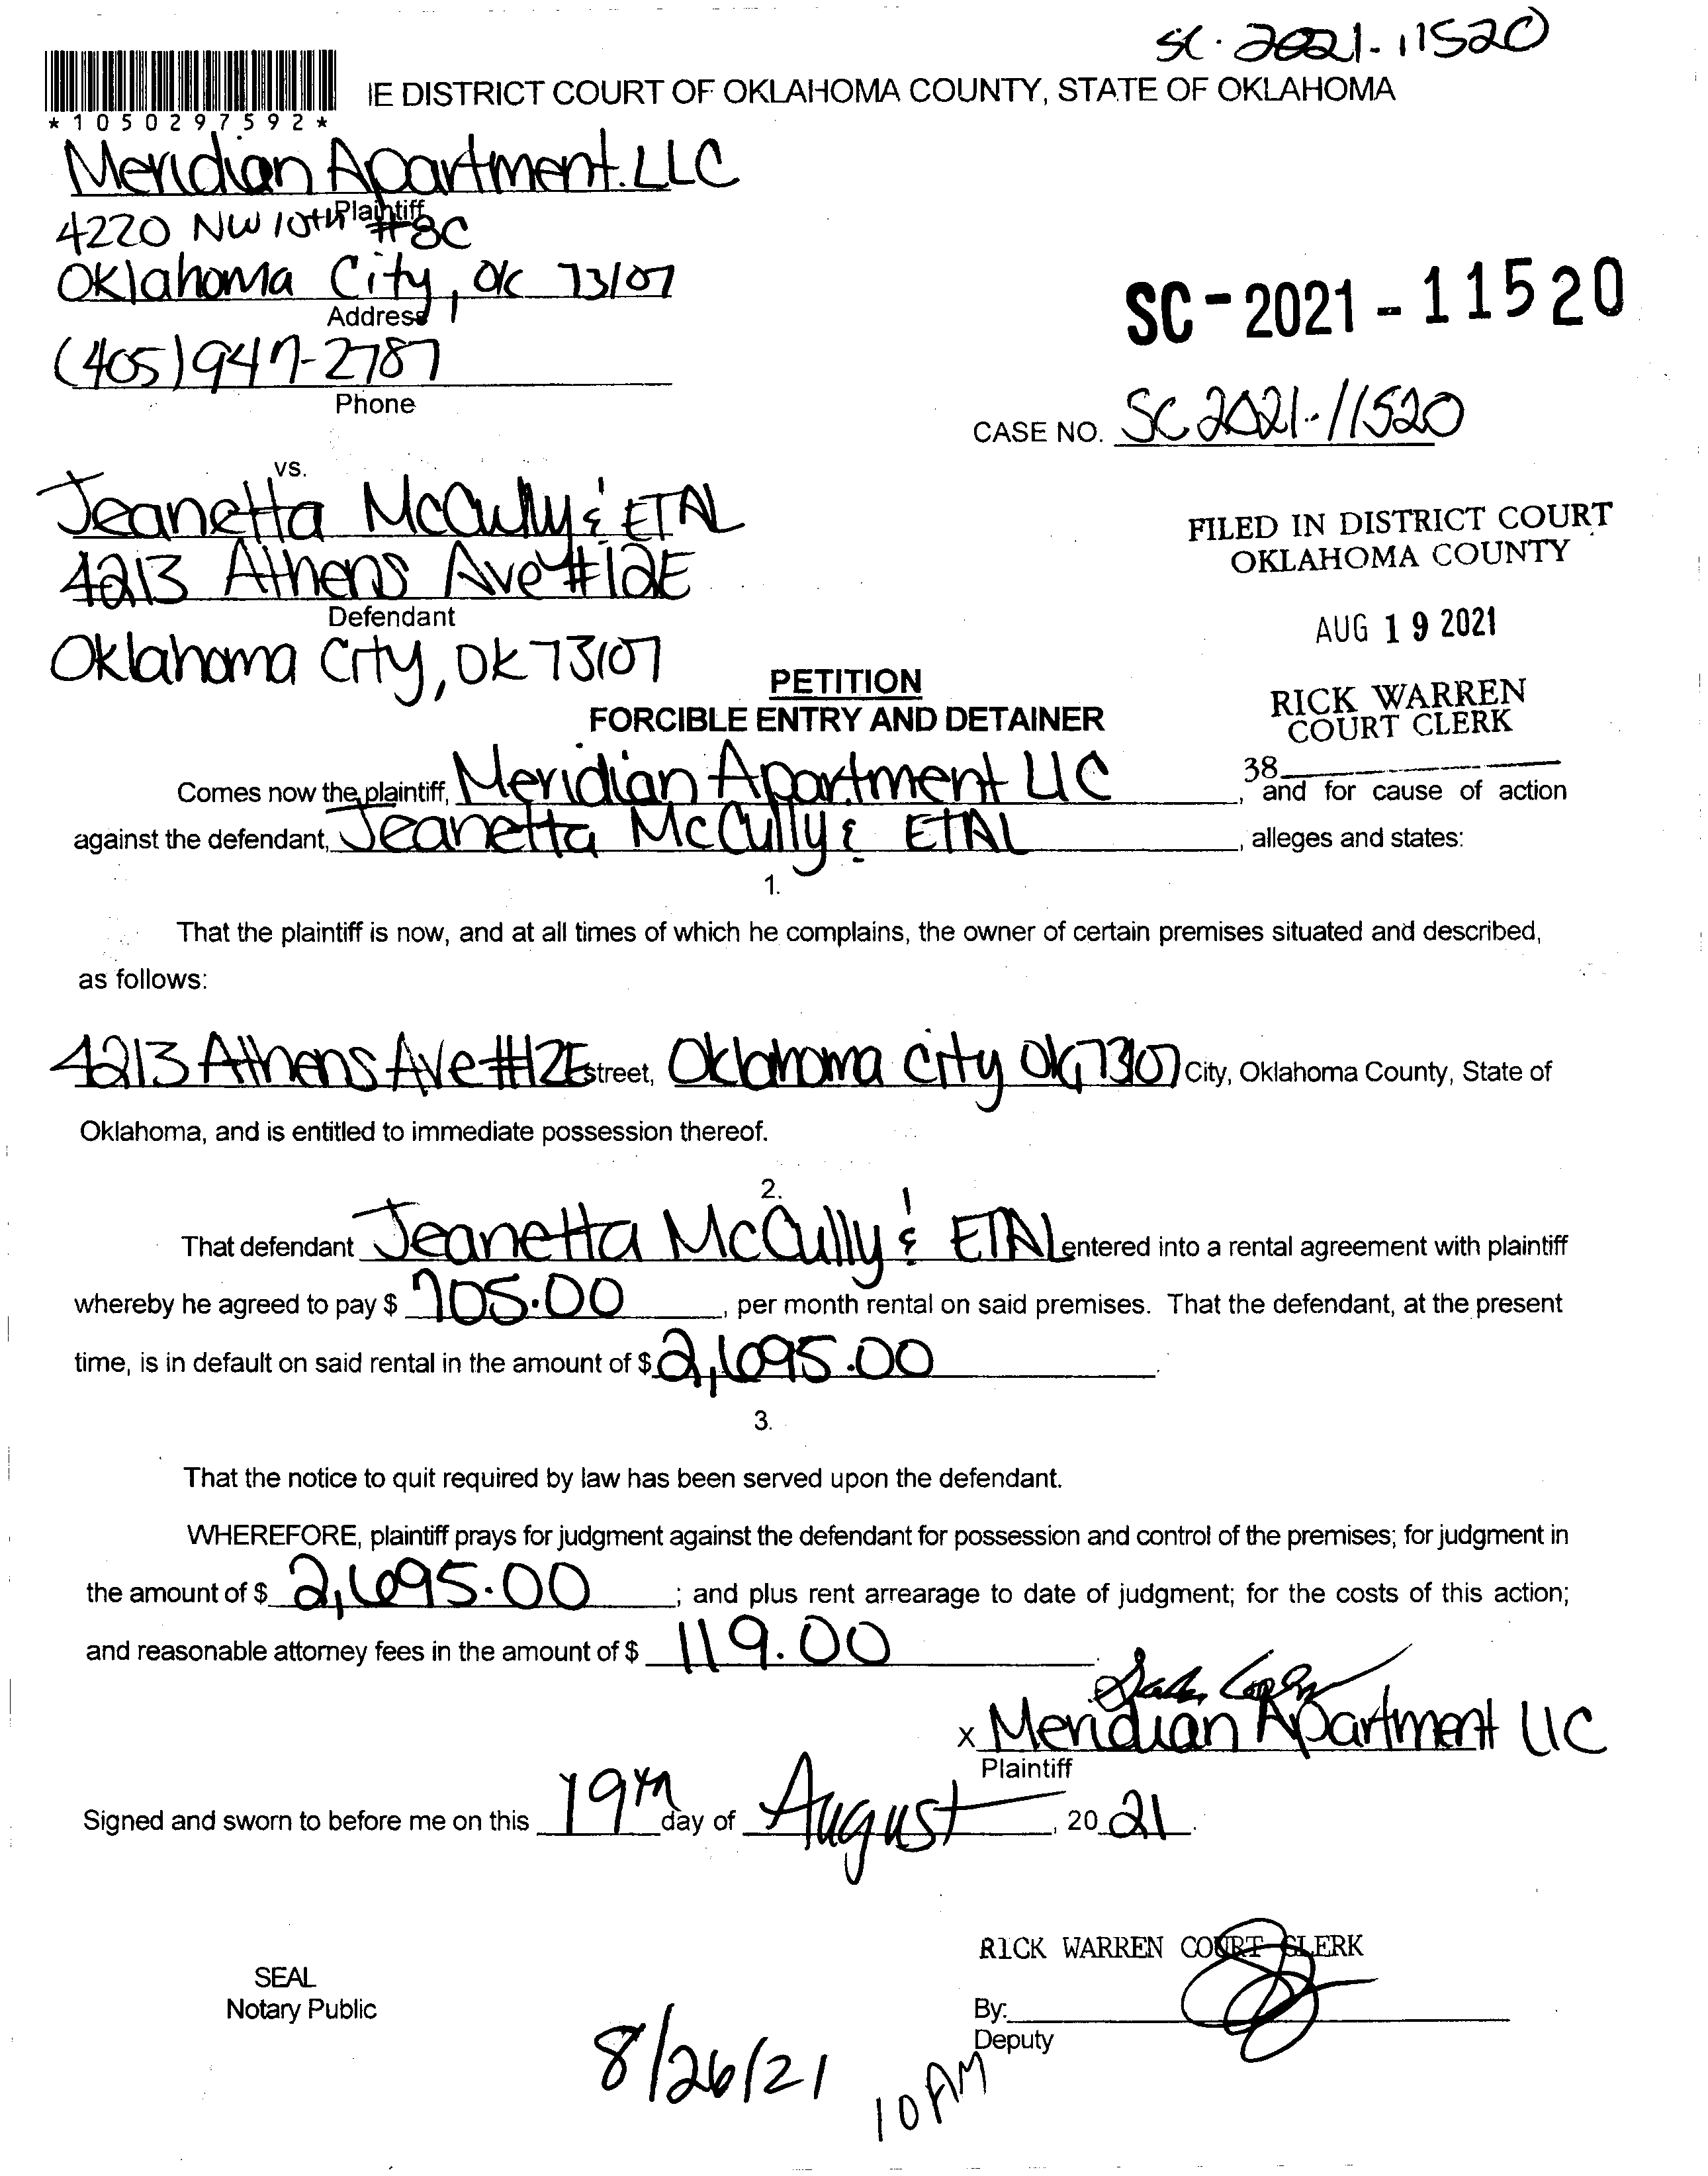 SC-2021-11520
IE DISTRICT COURT OF OKLAHOMA COUNTY, STATE OF OKLAHOMA
*1050297592*
Meridian Apartment.LLC
Plaintiff
4220 NW 10TH #8C
Oklahoma City, OK 73107
Address
SC-2021-11520
(405)947-2787
Phone
CASE NO. SC 2021-11520
vs.
Jeanetta McCully & ETAL
FILED IN DISTRICT COURT
OKLAHOMA COUNTY
4213 Athens Ave #12E
Defendant
AUG 19 2021
Oklahoma City, OK 73107
PETITION
RICK WARREN
COURT CLERK
FORCIBLE ENTRY AND DETAINER
38
Comes now the plaintiff, Meridian Apartment LLC, and for cause of action
against the defendant, Jeanetta McCully & ETAL, alleges and states:
1.
That the plaintiff is now, and at all times of which he complains, the owner of certain premises situated and described,
as follows:
4213 Athens Ave #12E street, Oklahoma City OK 73107 City, Oklahoma County, State of
Oklahoma, and is entitled to immediate possession thereof.
2.
That defendant Jeanetta McCully & ETAL entered into a rental agreement with plaintiff
whereby he agreed to pay $ 705.00, per month rental on said premises. That the defendant, at the present
time, is in default on said rental in the amount of $ 2,695.00.
3.
That the notice to quit required by law has been served upon the defendant.
WHEREFORE, plaintiff prays for judgment against the defendant for possession and control of the premises; for judgment in
the amount of $ 2,695.00; and plus rent arrearage to date of judgment; for the costs of this action;
and reasonable attorney fees in the amount of $ 119.00.
x Meridian Apartment LLC
Plaintiff
Signed and sworn to before me on this 19th day of August, 2021.
RICK WARREN COURT CLERK
SEAL
Notary Public
By:
Deputy
8/26/21
10 AM